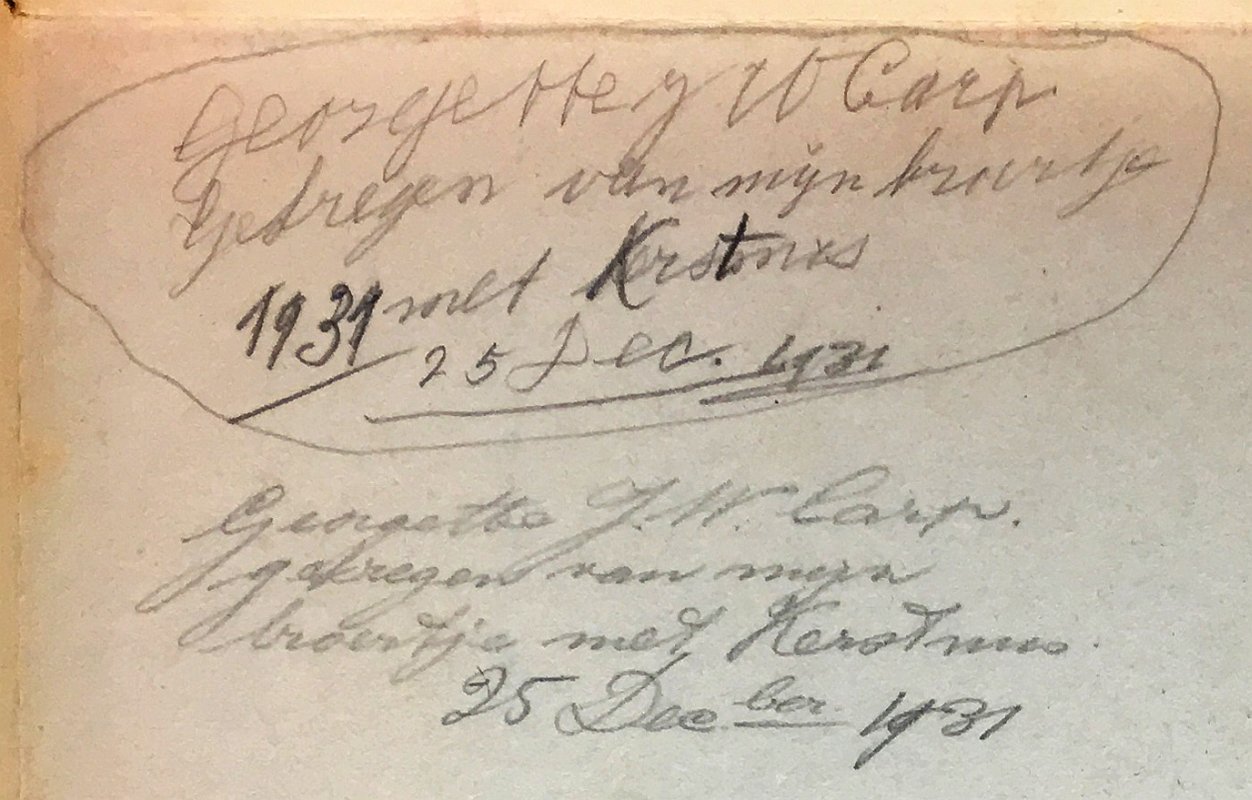 Georgette J W Carp
Gekregen van mijn broertje
1931 met Kerstmis
25 Dec. 1931
Georgette J. W. Carp.
gekregen van mijn
broertje met Kerstmis.
25 Dec ber 1931